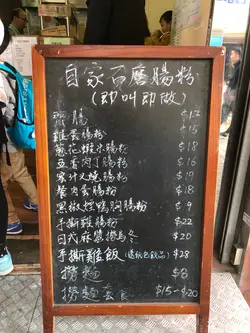 自家石磨腸粉
(即叫即做)
齋腸 $12
雞蛋腸粉 $15
蔥花蝦米腸粉 $18
五香肉丁腸粉 $16
蜜汁叉燒腸粉 $19
餐肉蛋腸粉 $18
黑椒煙鴨胸腸粉 $9
手撕雞腸粉 $22
日式麻醬撈烏冬 $20
手撕雞飯(送紙包飲品) $28
撈麵 $8
撈麵套食 $15-$20